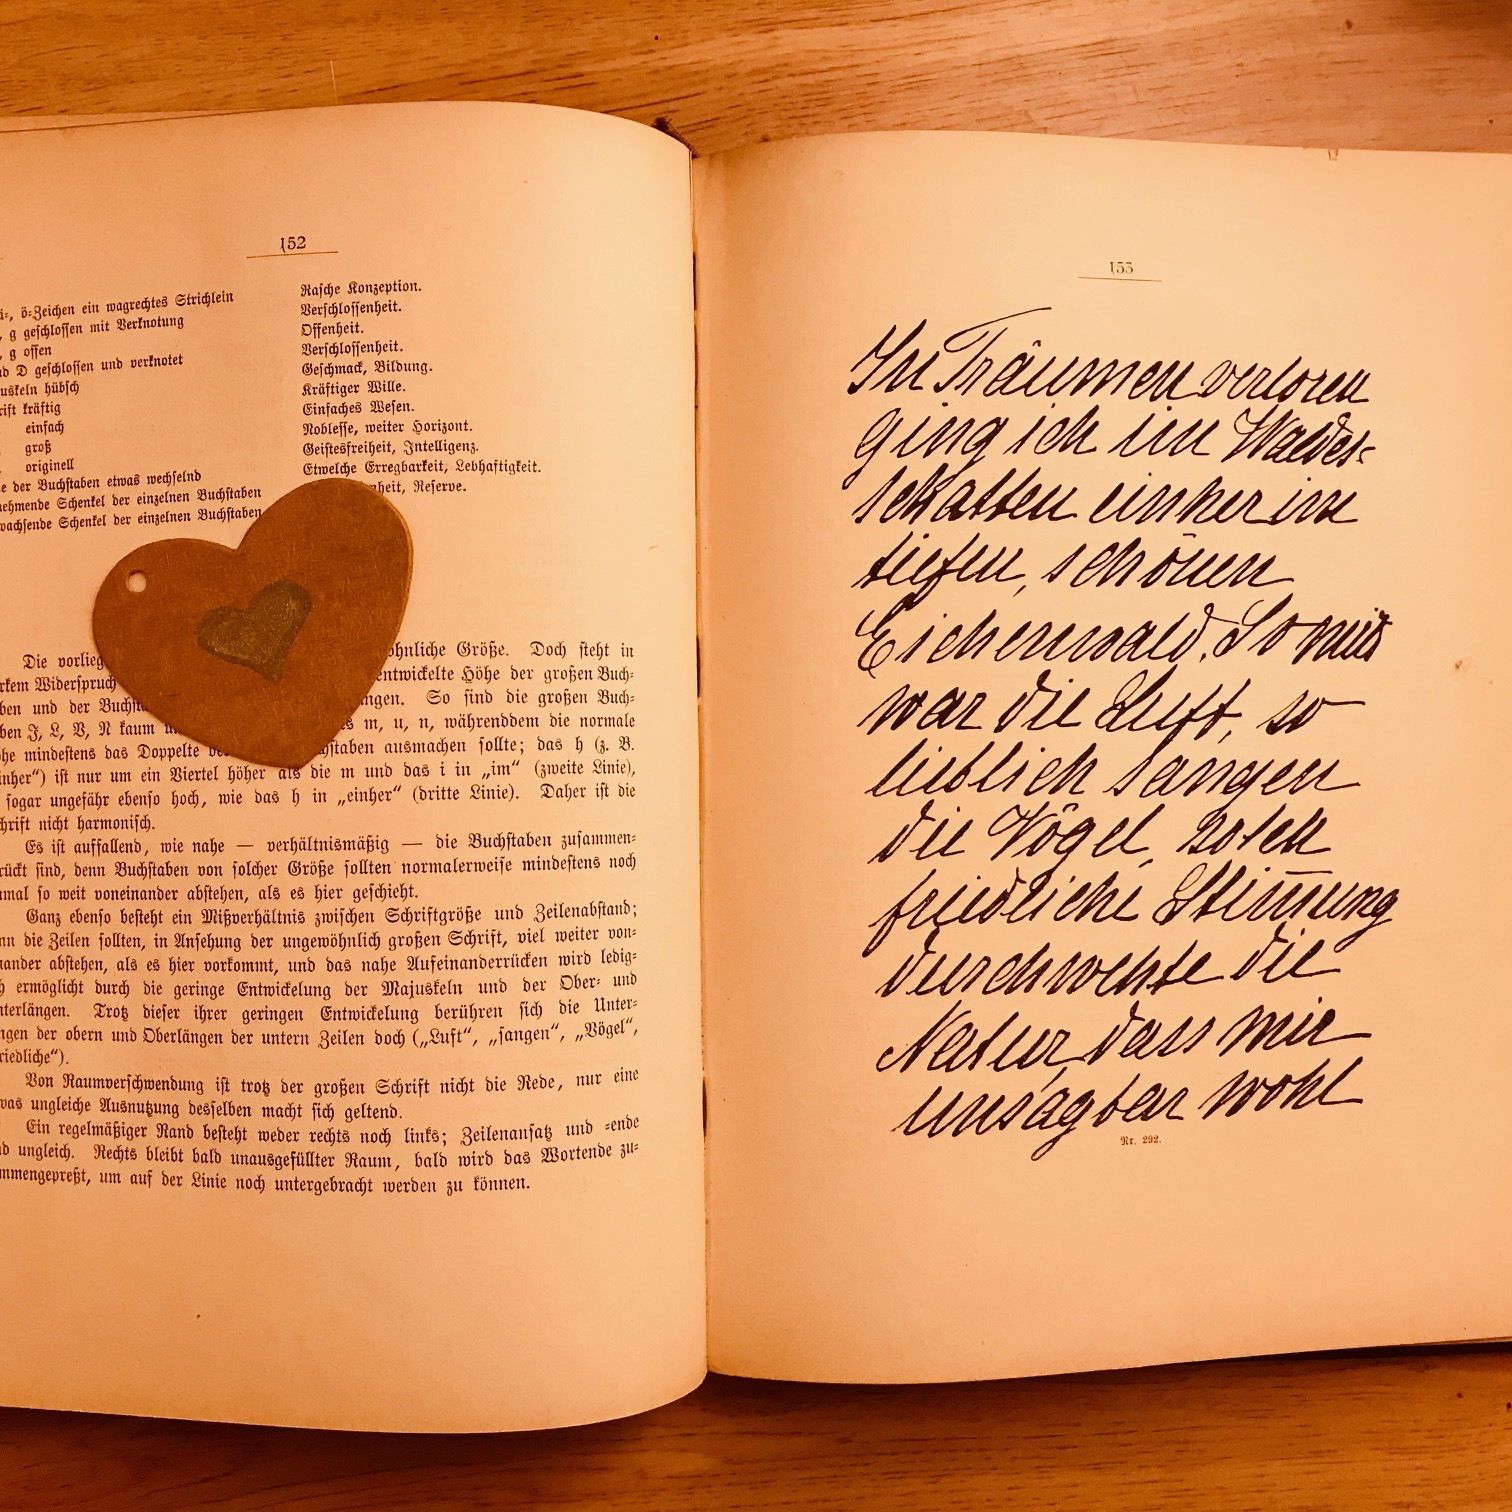 152
i=, ö=Zeichen ein wagrechtes Strichlein
, g geschlossen mit Verknotung
, g offen
D geschlossen und verknotet
uskeln hübsch
rift kräftig
einfach
groß
originell
e der Buchstaben etwas wechselnd
nehmende Schenkel der einzelnen Buchstaben
wachsende Schenkel der einzelnen Buchstaben
Rasche Konzeption.
Verschlossenheit.
Offenheit.
Verschlossenheit.
Geschmack, Bildung.
Kräftiger Wille.
Einfaches Wesen.
Noblesse, weiter Horizont.
Geistesfreiheit, Intelligenz.
Etwelche Erregbarkeit, Lebhaftigkeit.
heit, Reserve.
Die vorlieg öhnliche Größe. Doch steht in
rkem Widerspruch entwickelte Höhe der großen Buch=
ben und der Buchst ngen. So sind die großen Buch=
ben J, L, V, N kaum s m, u, n, währenddem die normale
öhe mindestens das Doppelte chstaben ausmachen sollte; das h (z. B.
inher“) ist nur um ein Viertel höher als die m und das i in „im“ (zweite Linie),
sogar ungefähr ebenso hoch, wie das h in „einher“ (dritte Linie). Daher ist die
chrift nicht harmonisch.
Es ist auffallend, wie nahe — verhältnismäßig — die Buchstaben zusammen=
rückt sind, denn Buchstaben von solcher Größe sollten normalerweise mindestens noch
nmal so weit voneinander abstehen, als es hier geschieht.
Ganz ebenso besteht ein Mißverhältnis zwischen Schriftgröße und Zeilenabstand;
nn die Zeilen sollten, in Ansehung der ungewöhnlich großen Schrift, viel weiter von=
nander abstehen, als es hier vorkommt, und das nahe Aufeinanderrücken wird ledig=
h ermöglicht durch die geringe Entwickelung der Majuskeln und der Ober= und
nterlängen. Trotz dieser ihrer geringen Entwickelung berühren sich die Unter=
ngen der obern und Oberlängen der untern Zeilen doch („Luft“, „sangen“, „Vögel“,
riedliche“).
Von Raumverschwendung ist trotz der großen Schrift nicht die Rede, nur eine
was ungleiche Ausnutzung desselben macht sich geltend.
Ein regelmäßiger Rand besteht weder rechts noch links; Zeilenansatz und =ende
d ungleich. Rechts bleibt bald unausgefüllter Raum, bald wird das Wortende zu=
mmengepreßt, um auf der Linie noch untergebracht werden zu können.
153
In Träumen verloren
ging ich im Waldes=
schatten einher im
tiefen, schönen
Eichenwald. So mild
war die Luft, so
lieblich sangen
die Vögel, solch
friedliche Stim̅ung
durchwehte die
Natur, dass mir
unsagbar wohl
Nr. 292.